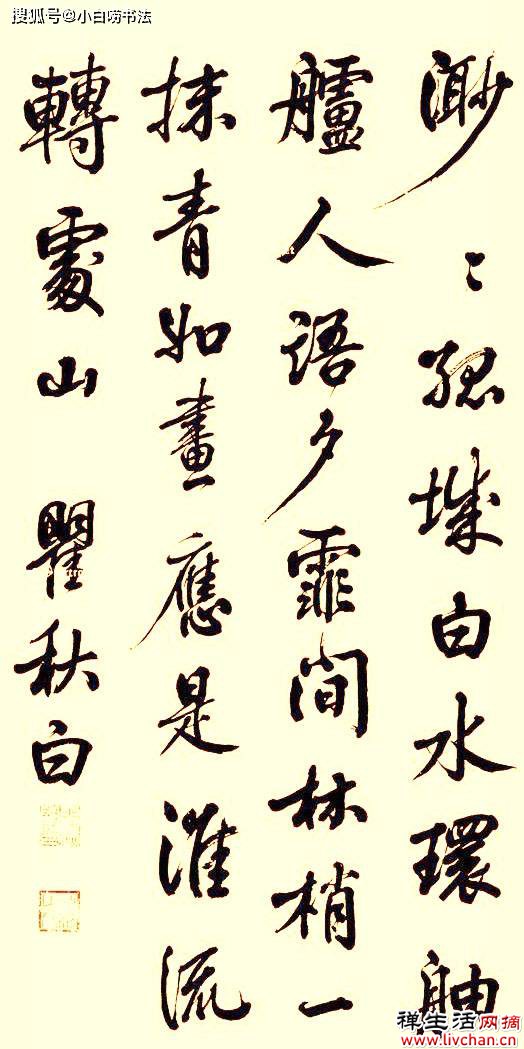 搜狐号@小白唠书法
渺〻孤城白水環舳
艫人語夕霏間林梢一
抹青如畫應是淮流
轉處山 瞿秋白
禅生活网摘
www.livchan.cn